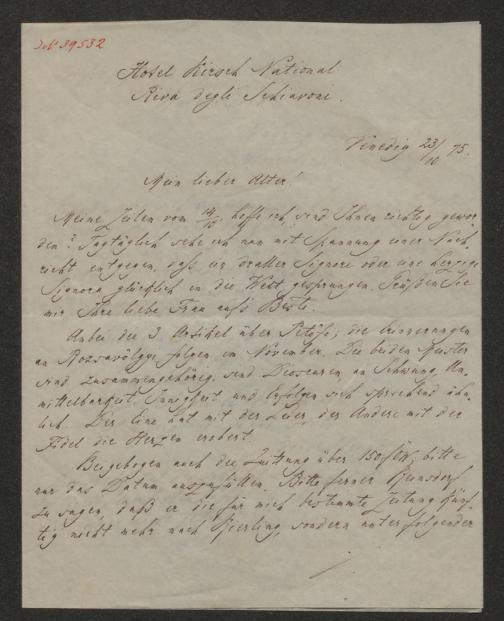 IN 39532
Hotel Kirsch National
Riva degli Schiavoni.
Venedig 23/10 75.
Mein lieber Alter!
Meine Zeilen vom 14/10. hoffe ich, sind Ihnen richtig gewor
den? Tagtäglich sehe ich nun mit Spannung einer Nach
richt entgegen, daß ein draller Signore oder eine herzige
Signora glücklich in die Welt gesprungen. Grüßen Sie
mir Ihre liebe Frau aufs Beste.
Anbei die 3 Artikel über Petöfi; die Erinnerungen
an Rozsavölgyi folgen im November. Die beiden Meister
sind zusammengehörig, sind Dioscuren, an Schwung, Un
mittelbarkeit, Innigkeit und sich sprechend ähn
lich. Der Eine hat mit der Leier, der Andere mit der
Fidel die Herzen erobert.
Beigebogen auch die Quittung über 150 bitte
nur das Datum auszufüllen. Bitte ferner Reinsdorf
zu sagen, daß er die für mich bestimmte Zeitung künf
tig nicht mehr nach Kierling, sondern unter folgender